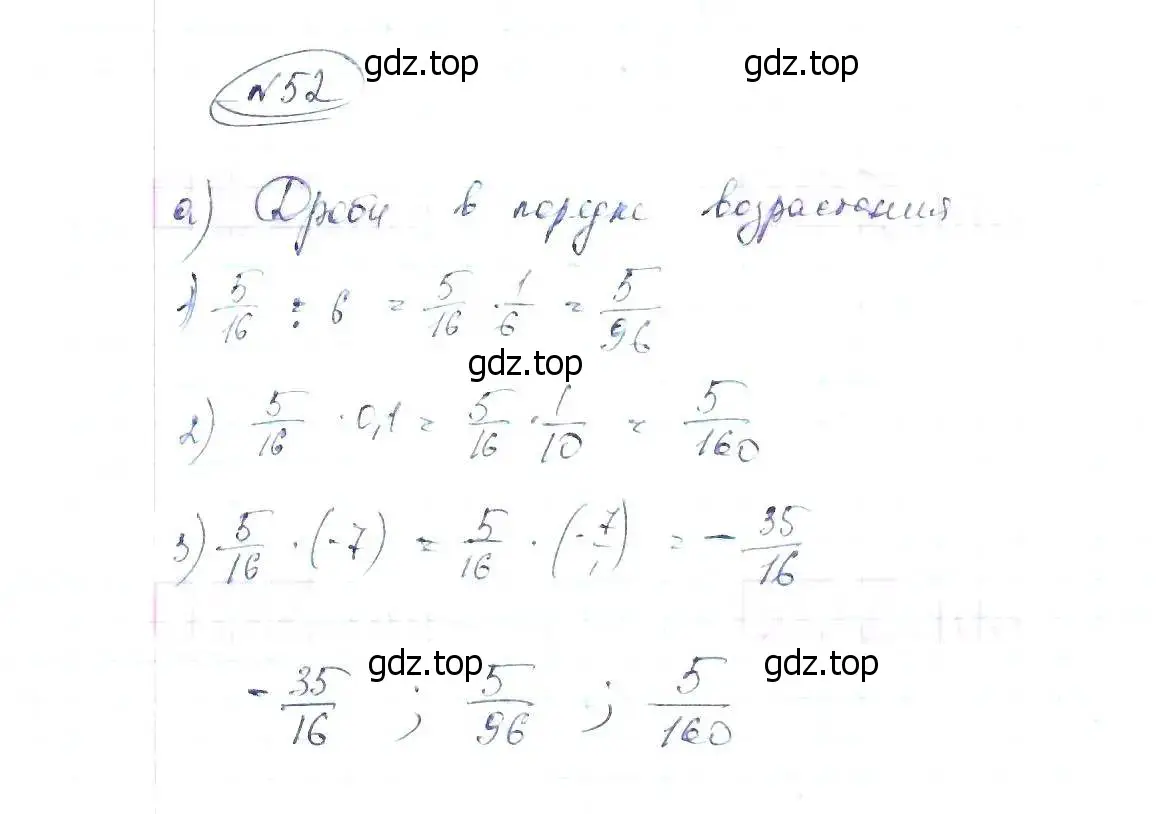 №52 gdz.top gdz.top
а) Дроби в порядке возрастания
1) 5/16 : 6 = 5/16 · 1/6 = 5/96
gdz.top
2) 5/16 · 0,1 = 5/16 · 1/10 = 5/160
3) 5/16 · (-7) = 5/16 · (-7/1) = - 35/16
gdz.top gdz.top
- 35/16 ; 5/96 ; 5/160